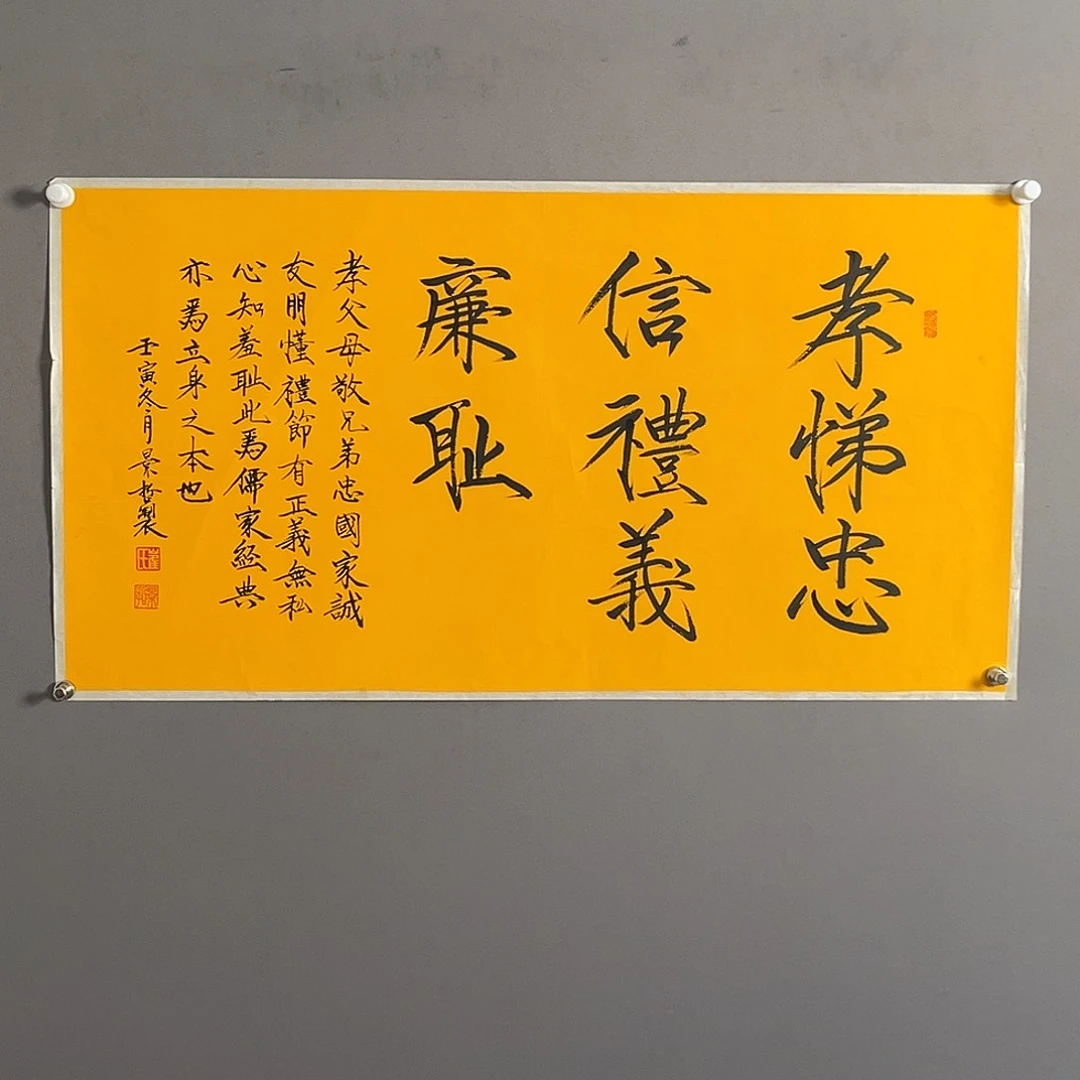 孝悌忠
信禮義
廉耻
孝父母敬兄弟忠國家誠
友朋懂禮節有正義無私
心知羞耻此爲儒家經典
亦爲立身之本也
壬寅冬月景哲製